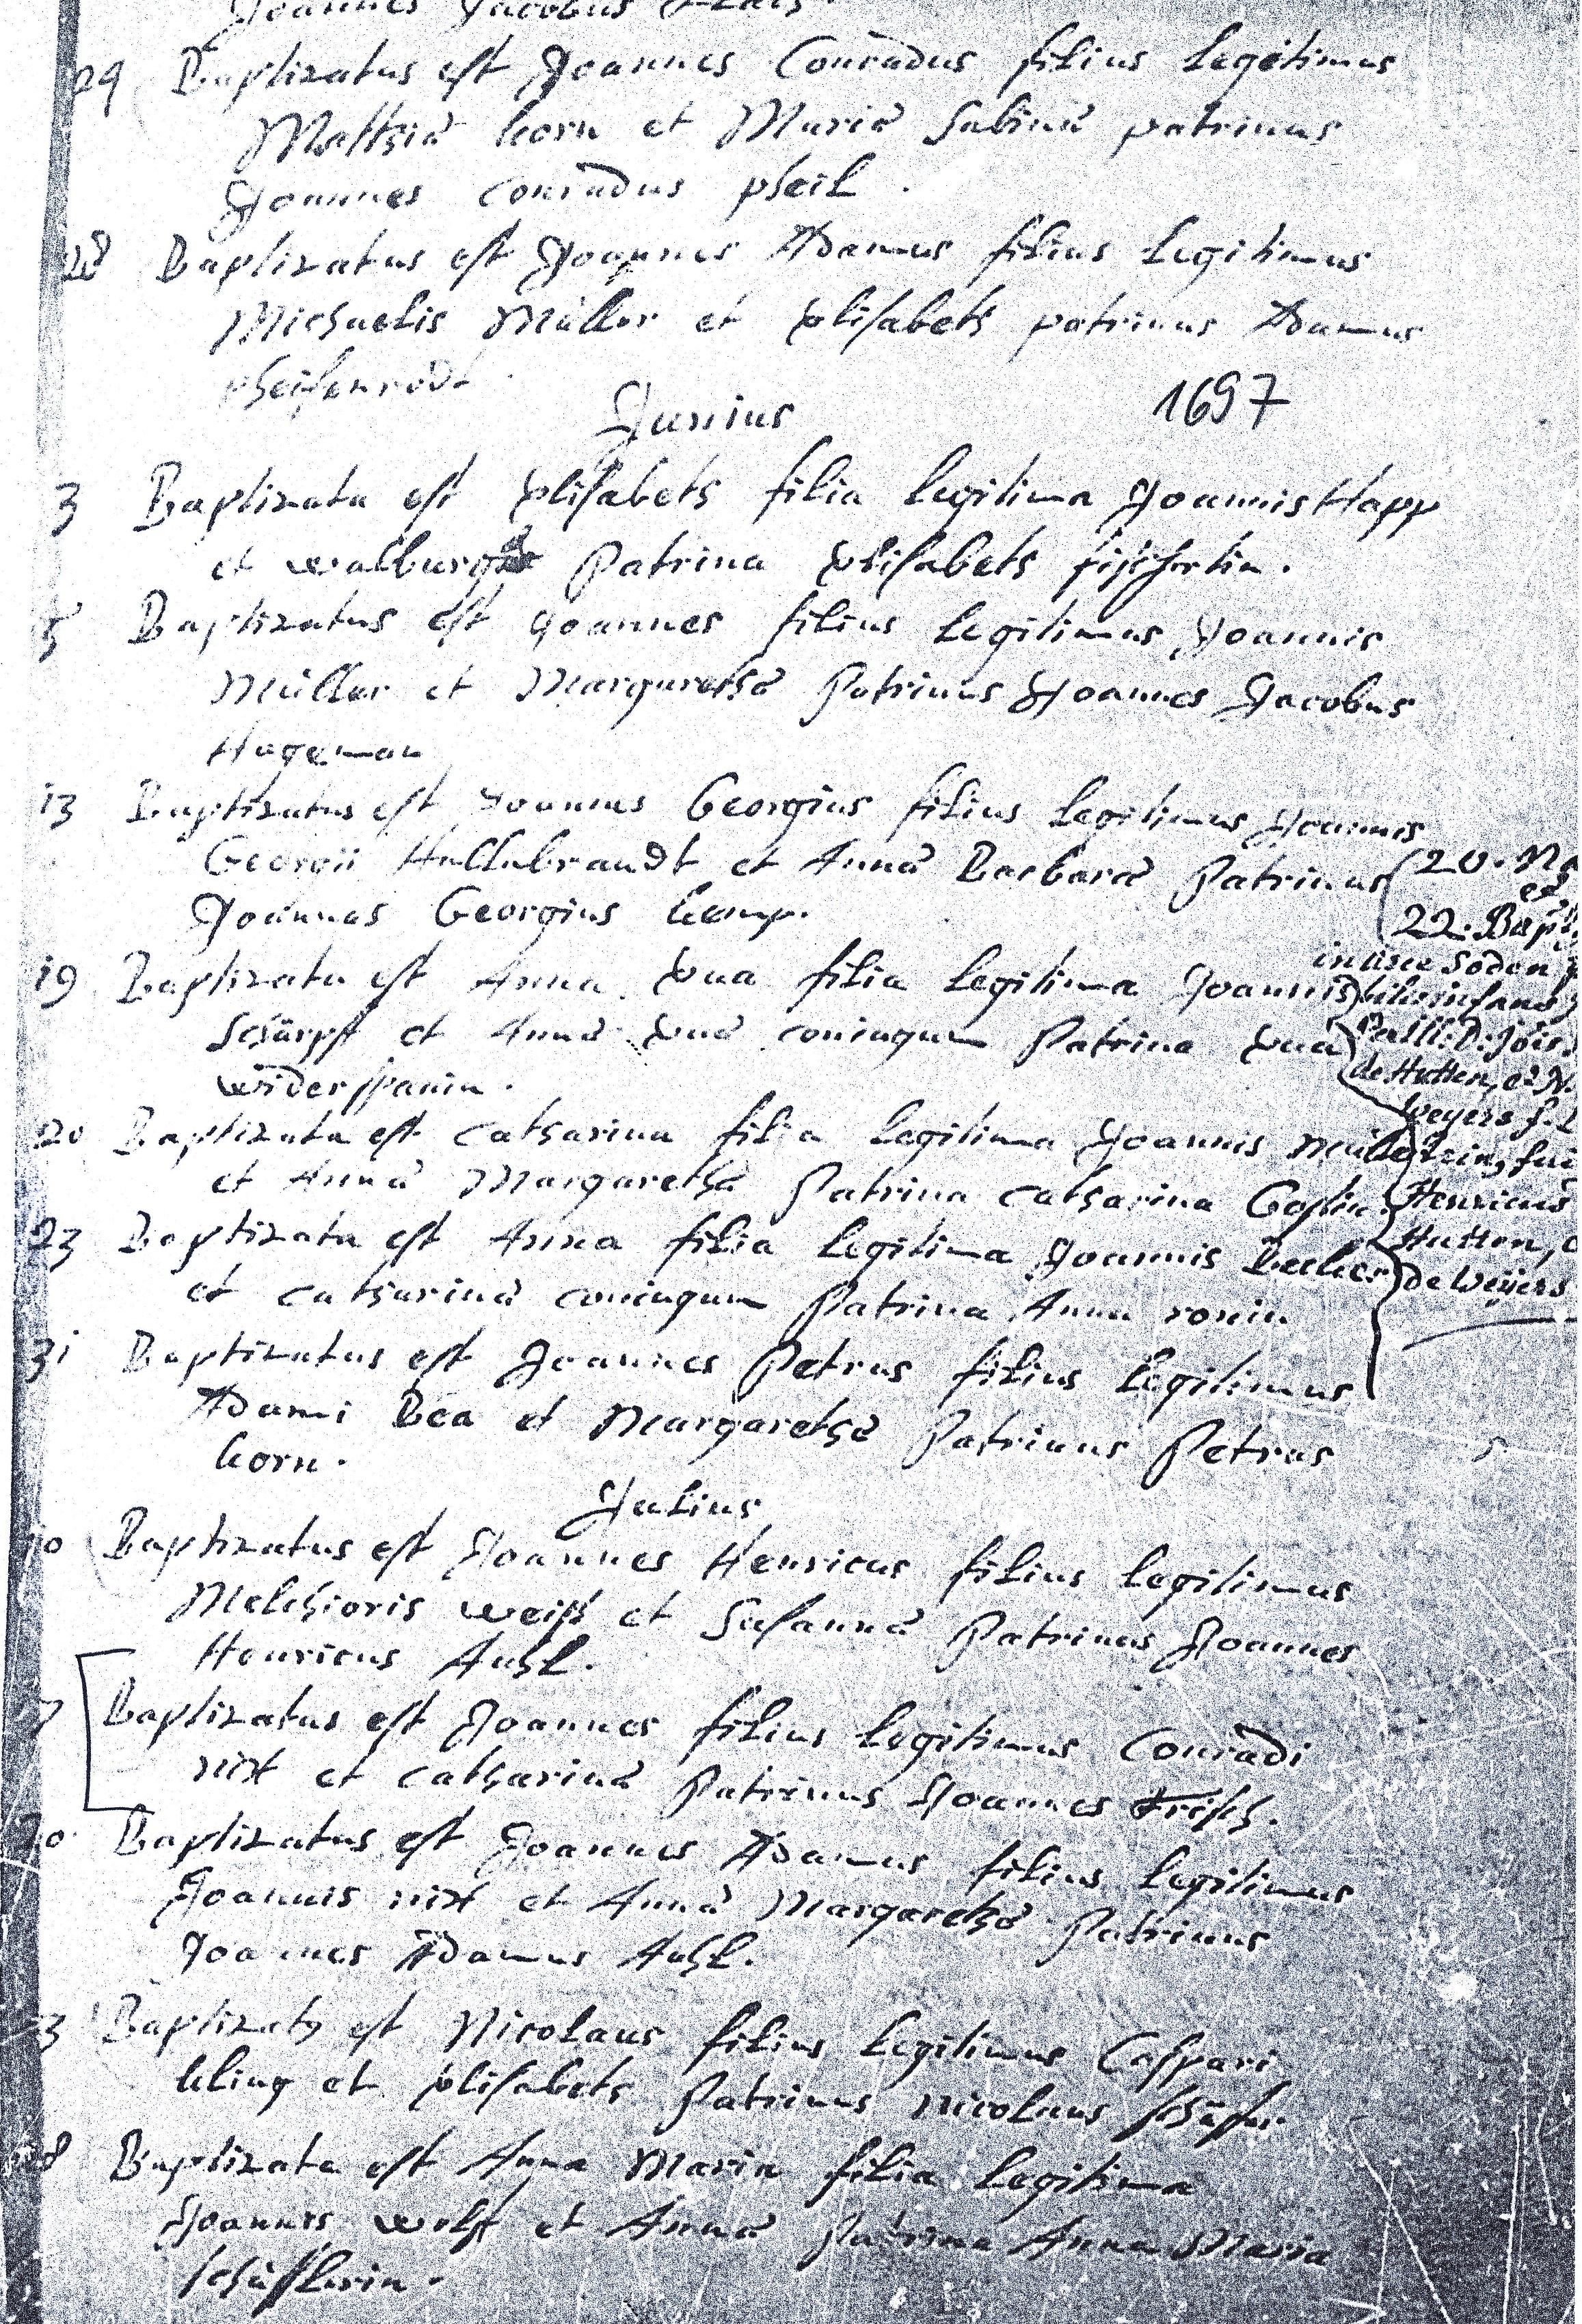 Joannes Jacobus
29 Baptizatus est Joannes Conradus filius legitimus
Matthiæ korn et Mariæ Sabinæ patrinus
Joannes Conradus pfeil.
Baptizatus est Joannes Adamus filius legitimus
Michaelis Müller et Elisabeth patrinus Adamus
Junius 1697
3 Baptizata est Elisabeth filia legitima Joannis Happ
et walburgæ Patrina Elisabeth
5 Baptizatus est Joannes filius legitimus Joannis
Müller et Margarethæ Patrinus Joannes Jacobus
Hageman
13 Baptizatus est Joannes Georgius filius legitimus Joannis
Georgii Hellubrandt et Annæ Barbaræ Patrinus
Joannes Georgius kemp.
19 Baptizata est Anna Eva filia legitima Joannis
Schärpf et Annæ Evæ coniugum Patrina Eva
widerspanin.
20 Baptizata est Catharina filia legitima Joannis Müller
et Annæ Margarethæ Patrina Catharina
23 Baptizata est Anna filia legitima Joannis Becker
et Catharinæ coniugum Patrina Anna
31 Baptizatus est Joannes Petrus filius legitimus
Adami Bea et Margarethæ Patrinus Petrus
korn.
20. Na
et
22. Bapt
in arce Soden
de Hutten, et N.
weyers f. L
Henricus
Hutten, e
de weyers
Julius
Baptizatus est Joannes Henricus filius legitimus
Melchioris weiß et Susannæ Patrinus Joannes
Henricus Auhl.
7 Baptizatus est Joannes filius legitimus Conradi
nix et Catharinæ Patrinus Joannes Frisch.
20 Baptizatus est Joannes Adamus filius legitimus
Joannis nix et Annæ Margarethæ Patrinus
Joannes Adamus Auhl.
Baptizatus est Nicolaus filius legitimus Caspari
kling et Elisabeth Patrinus nicolaus schäfer.
Baptizata est Anna Maria filia legitima
Joannis wolf et Annæ Patrina Anna Maria